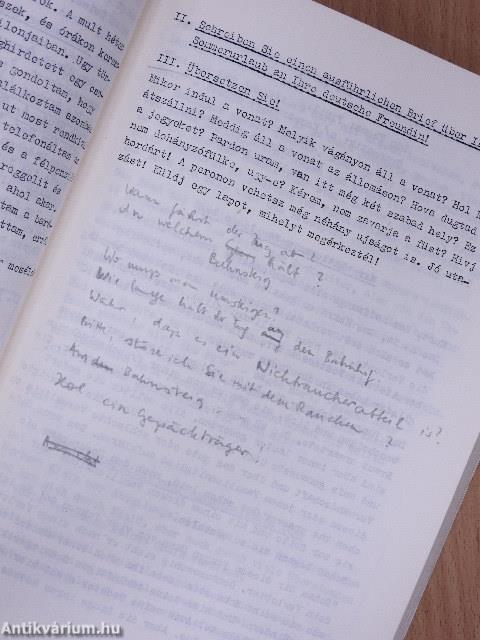 rök. A mult héten
szek, és órákon
ilonjaiben. Úgy
ghirdetett egy
Gondoltam, hogy
lálkoztam
ut most
telefonáltam
és a
roggolit és
ahol
tam a
ottam,
mosás
II. Schreiben Sie einen ausführlichen Brief über
Sommerurlaub an Ihre deutsche Freundin!
III. Übersetzen Sie!
Mikor indul a vonat? Melyik vágányon áll a vonat? Hol
átszállni? Meddig áll a vonat az állomáson? Hova dugtad
a jegyeket? Pardon uram, van itt még két szabad hely? Ez
nem dohányzófülke, ugy-e? Kérem, nem zavarja a füst? Hívj
hordárt! A peronon vehetsz még néhány ujságot is. Jó uta-
zást! Küldj egy lapot, mihelyt megérkeztél!
Wann fährt der Zug ab?
An welchem hält?
Bahnsteig
Wo muss man umsteigen?
Wie lange hält der Zug auf den Bahnhof.
Wahr, dass es ein Nichtraucherabteil is?
Bitte, störe ich Sie mit dem Rauchen?
Auf dem Bahnsteig.
Hol ein Gepäckträger!
Antikvárium.hu